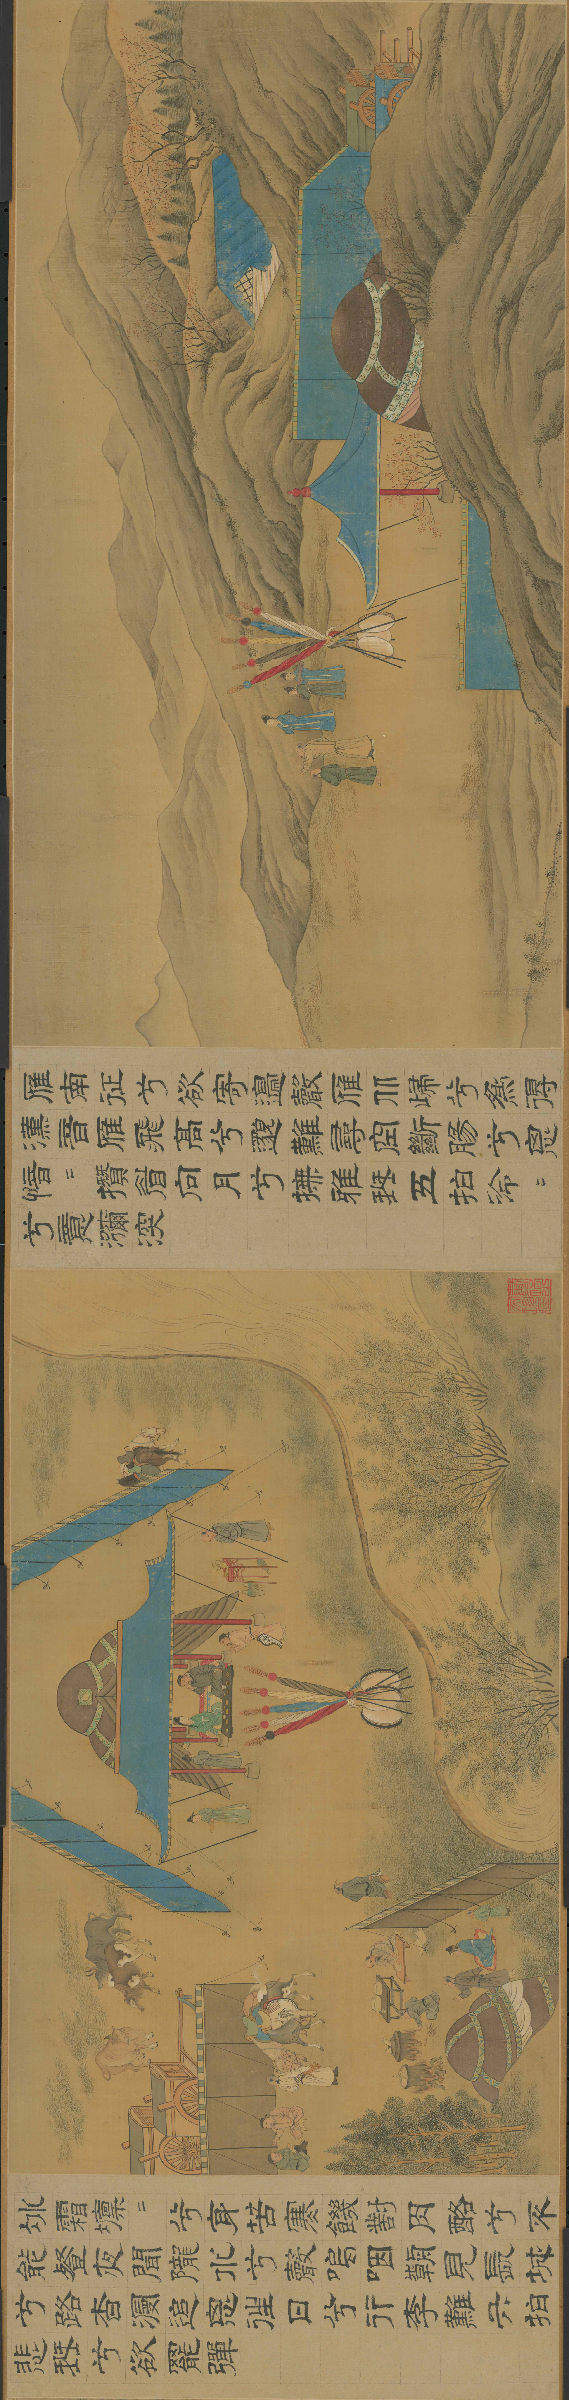 雁南征兮欲寄邊聲雁北歸兮為得
漢音雁飛高兮邈難尋空斷腸兮思
愔=攢眉向月兮撫雅琴五拍泠=
兮意彌深
冰霜凜=兮身苦寒饑對肉酪兮不
能餐夜聞隴水兮聲嗚咽朝見長城
兮路杳漫追思往日兮行李難六拍
悲琴兮欲罷彈